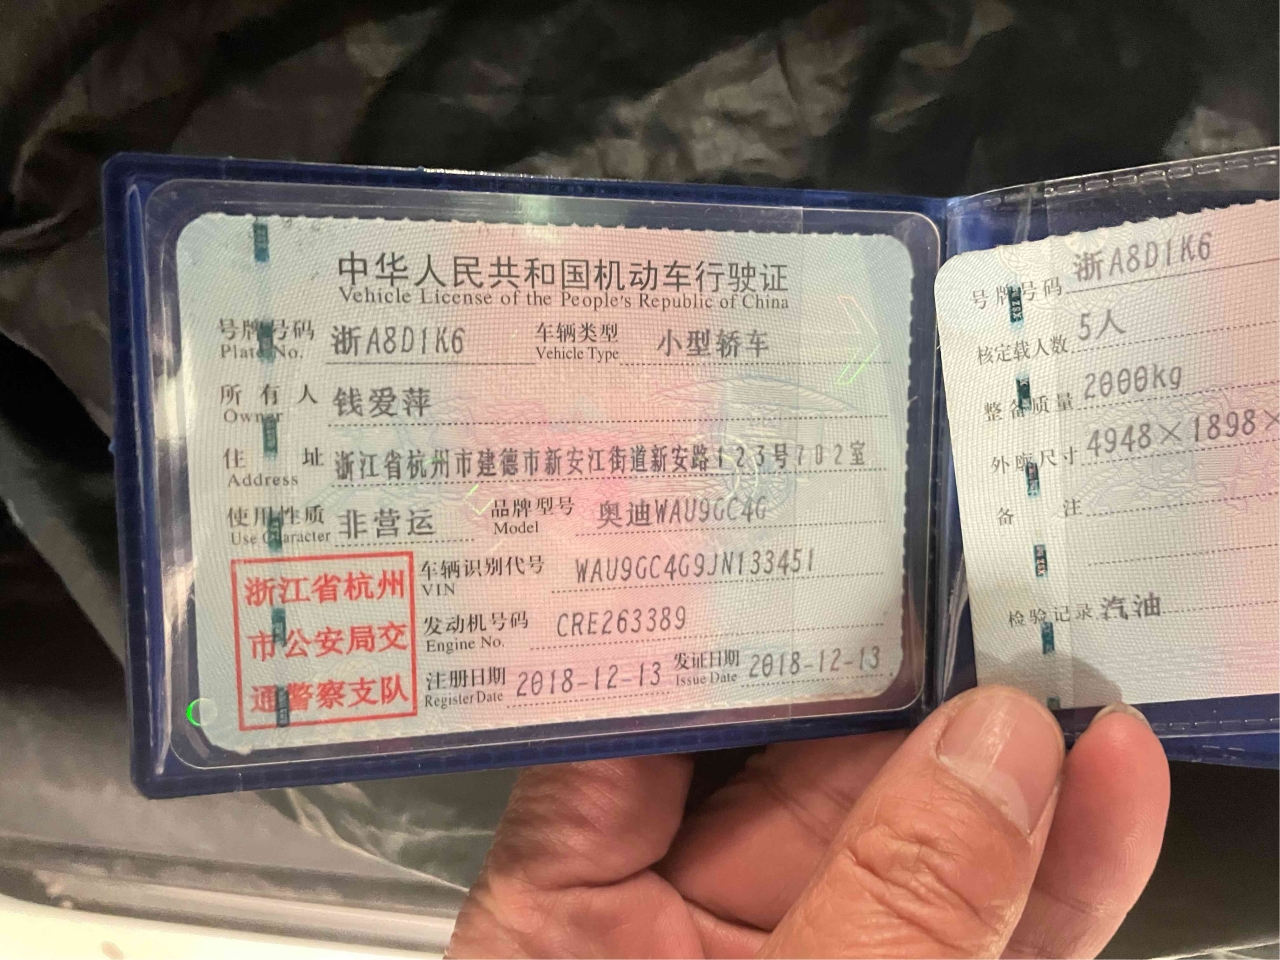 中华人民共和国机动车行驶证
Vehicle License of the People's Republic of China
号牌号码 浙A8D1K6 车辆类型 小型轿车
Plate No. Vehicle Type
所有人 钱爱萍
Owner
住址 浙江省杭州市建德市新安江街道新安路123号702室
Address
使用性质 非营运 品牌型号 奥迪WAU9GC4G
Use Character Model
浙江省杭州
市公安局交
通警察支队
车辆识别代号 WAU9GC4G9JN133451
VIN
发动机号码 CRE263389
Engine No.
注册日期 2018-12-13 发证日期 2018-12-13
Register Date Issue Date
号牌号码 浙A8D1K6
核定载人数 5人
整备质量 2000kg
外廓尺寸 4948×1898×
备注
检验记录 汽油